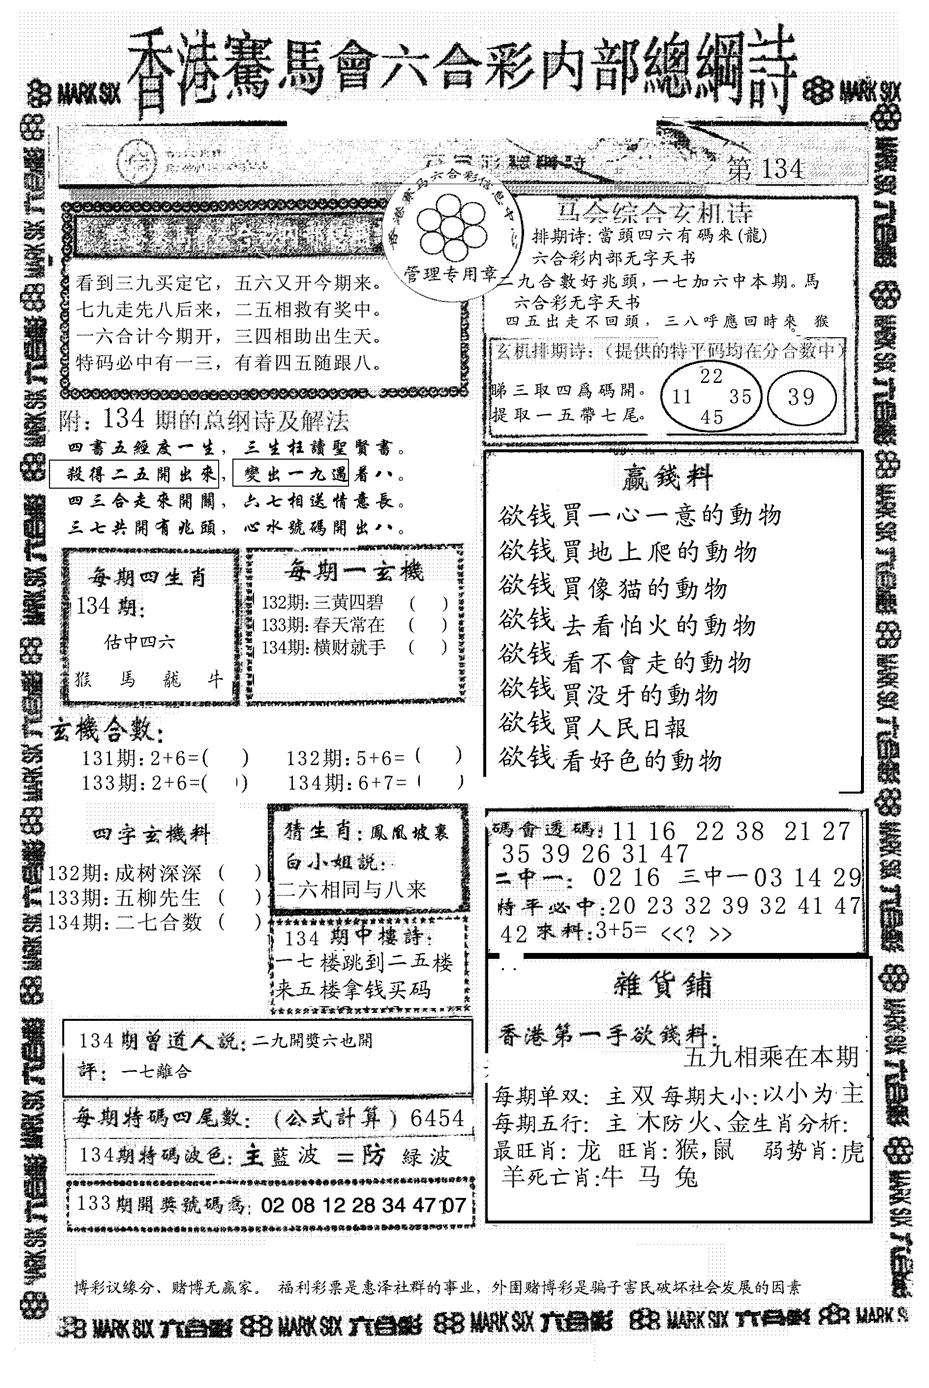 香港賽馬會六合彩内部總綱詩
MARK SIX
MARK SIX
第 134
香港赛马六合彩信息中
管理专用章
看到三九买定它，五六又开今期来。
七九走先八后来，二五相救有奖中。
一六合计今期开，三四相助出生天。
特码必中有一三，有着四五随跟八。
马会综合玄机诗
排期诗:當頭四六有碼來(龍)
六合彩内部无字天书
二九合數好兆頭,一七加六中本期。馬
六合彩无字天书
四五出走不回頭，三八呼應回時來。猴
玄机排期诗:（提供的特平码均在分合數中）
睇三取四爲碼開。
提取一五帶七尾。
22
11 35
45
39
附: 134 期的总纲诗及解法
四書五經度一生，三生枉讀聖賢書。
殺得二五開出來，變出一九遇着八。
四三合走來開關，六七相送情意長。
三七共開有兆頭，心水號碼開出八。
每期四生肖
134 期:
估中四六
猴 馬 龍 牛
每期一玄機
132期:三黄四碧 ( )
133期:春天常在 ( )
134期:横财就手 ( )
赢錢料
欲钱買一心一意的動物
欲钱買地上爬的動物
欲钱買像猫的動物
欲钱去看怕火的動物
欲钱看不會走的動物
欲钱買没牙的動物
欲钱買人民日報
欲钱看好色的動物
玄機合數:
131期:2+6=( ) 132期:5+6=( )
133期:2+6=( ) 134期:6+7=( )
四字玄機料
132期:成树深深 ( )
133期:五柳先生 ( )
134期:二七合数 ( )
猜生肖:鳳凰坡裏
白小姐説:
二六相同与八来
134 期中樓詩:
一七楼跳到二五楼
来五楼拿钱买码
碼會透碼:11 16 22 38 21 27
35 39 26 31 47
二中一: 02 16 三中一03 14 29
特平必中:20 23 32 39 32 41 47
42 來料:3+5= <<? >>
雜貨鋪
香港第一手欲錢料:
五九相乘在本期
每期单双: 主双每期大小:以小为主
每期五行: 主 木防火、金生肖分析:
最旺肖: 龙 旺肖:猴,鼠 弱势肖:虎
羊死亡肖:牛 马 兔
134期曾道人説:二九開奬六也開
評: 一七離合
每期特碼四尾數: (公式計算) 6454
134期特碼波色:主藍波 =防 緑波
133期開奬號碼爲: 02 08 12 28 34 47 07
博彩议缘分、赌博无赢家。 福利彩票是惠泽社群的事业，外围赌博彩是骗子害民破坏社会发展的因素
MARK SIX 六合彩 MARK SIX 六合彩 MARK SIX 六合彩 MARK SIX 六合彩 MARK SIX